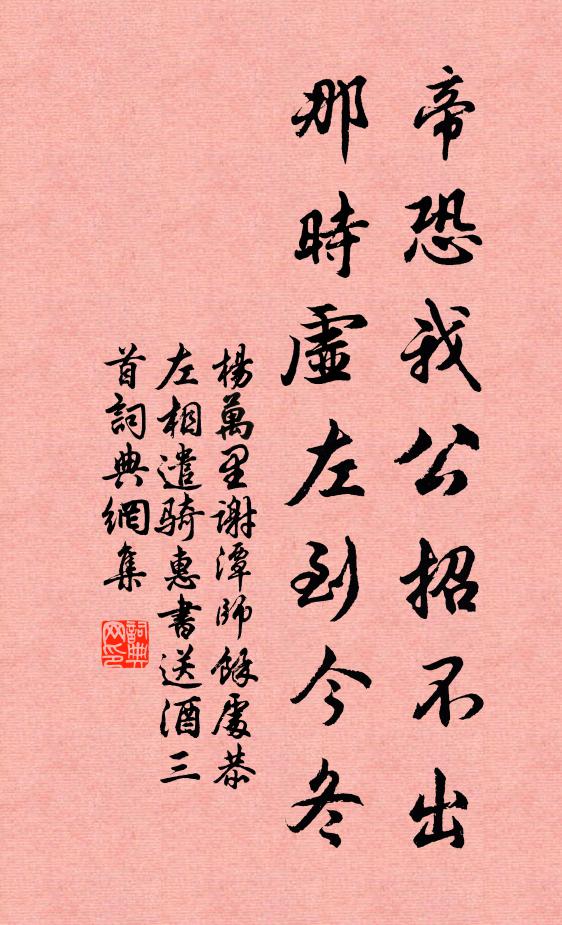 帝恐我公招不出
那時虛左到今冬
楊萬里謝潭師餘處恭
左相遣騎惠書送酒三
首詞典網集
詞典网印